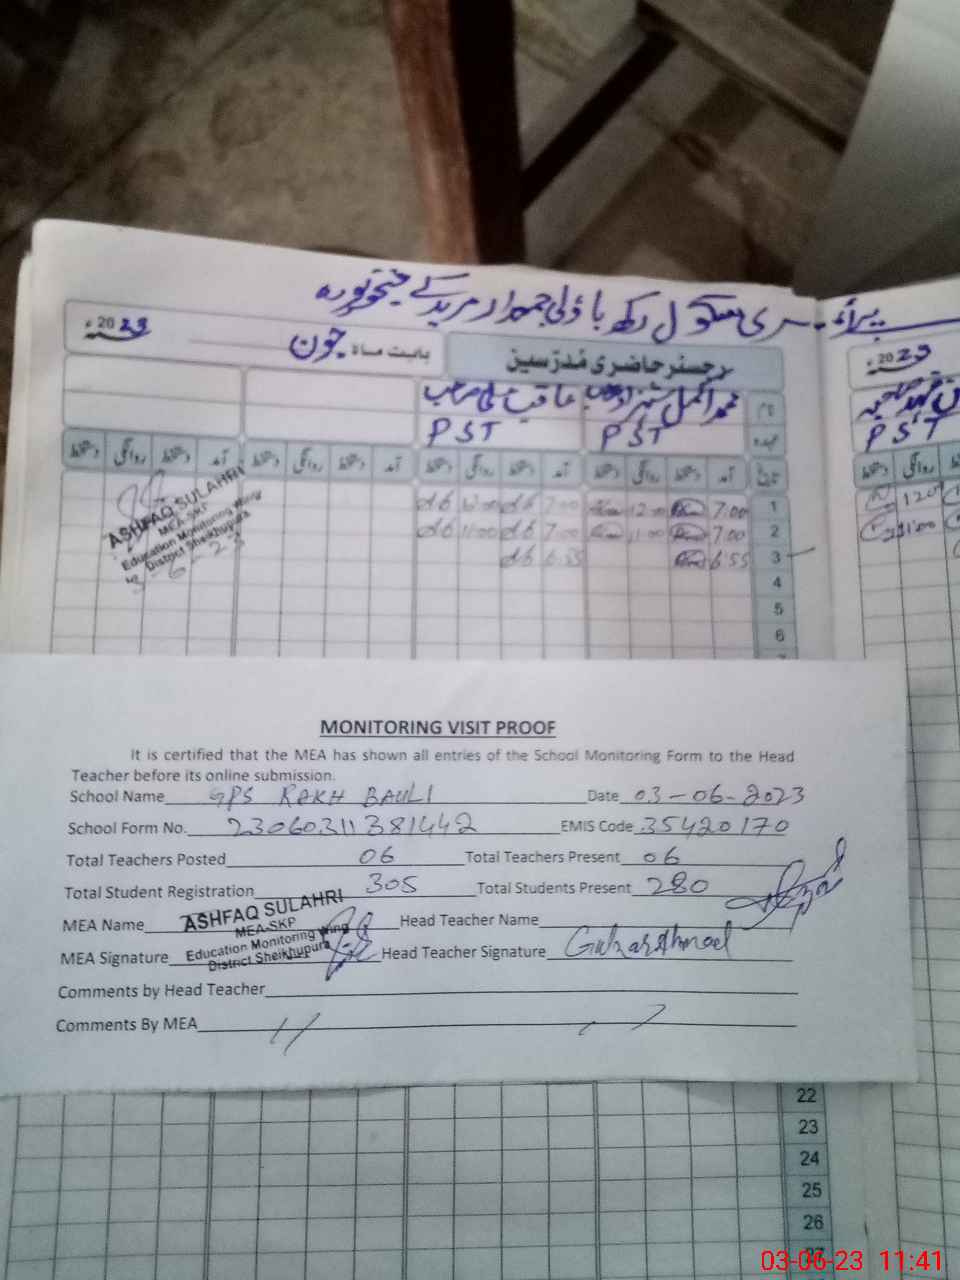 پرائمری سکول رکھ باؤلی جمعدار مرید کے شیخوپورہ
2023ء
بابت ماہ جون
رجسٹر حاضری مُدرّسین
2023ء
نام محمد اکمل شہزاد صاحب عاقب علی صاحب
عہدہ PST PST
PST
تاریخ آمد دستخط روانگی دستخط آمد دستخط روانگی دستخط آمد دستخط روانگی دستخط آمد دستخط روانگی دستخط
دستخط روانگی
1 7.00 12.00 7.00 12.00
2 7.00 11.00 7.00 11.00
3 6.55 6.55
4
5
6
1200
11.00
ASHFAQ SULAHRI
MEA-SKP
Education Monitoring Wing
District Sheikhupura
3-6-23
MONITORING VISIT PROOF
It is certified that the MEA has shown all entries of the School Monitoring Form to the Head
Teacher before its online submission.
School Name GPS RAKH BAULI Date 03-06-2023
School Form No. 23060311381442 EMIS Code 35420170
Total Teachers Posted 06 Total Teachers Present 06
Total Student Registration 305 Total Students Present 280
MEA Name ASHFAQ SULAHRI Head Teacher Name
MEA-SKP
Education Monitoring Wing
District Sheikhupura
MEA Signature Head Teacher Signature Gulzar Ahmad
Comments by Head Teacher
Comments By MEA
22
23
24
25
26
27
03-06-23 11:41